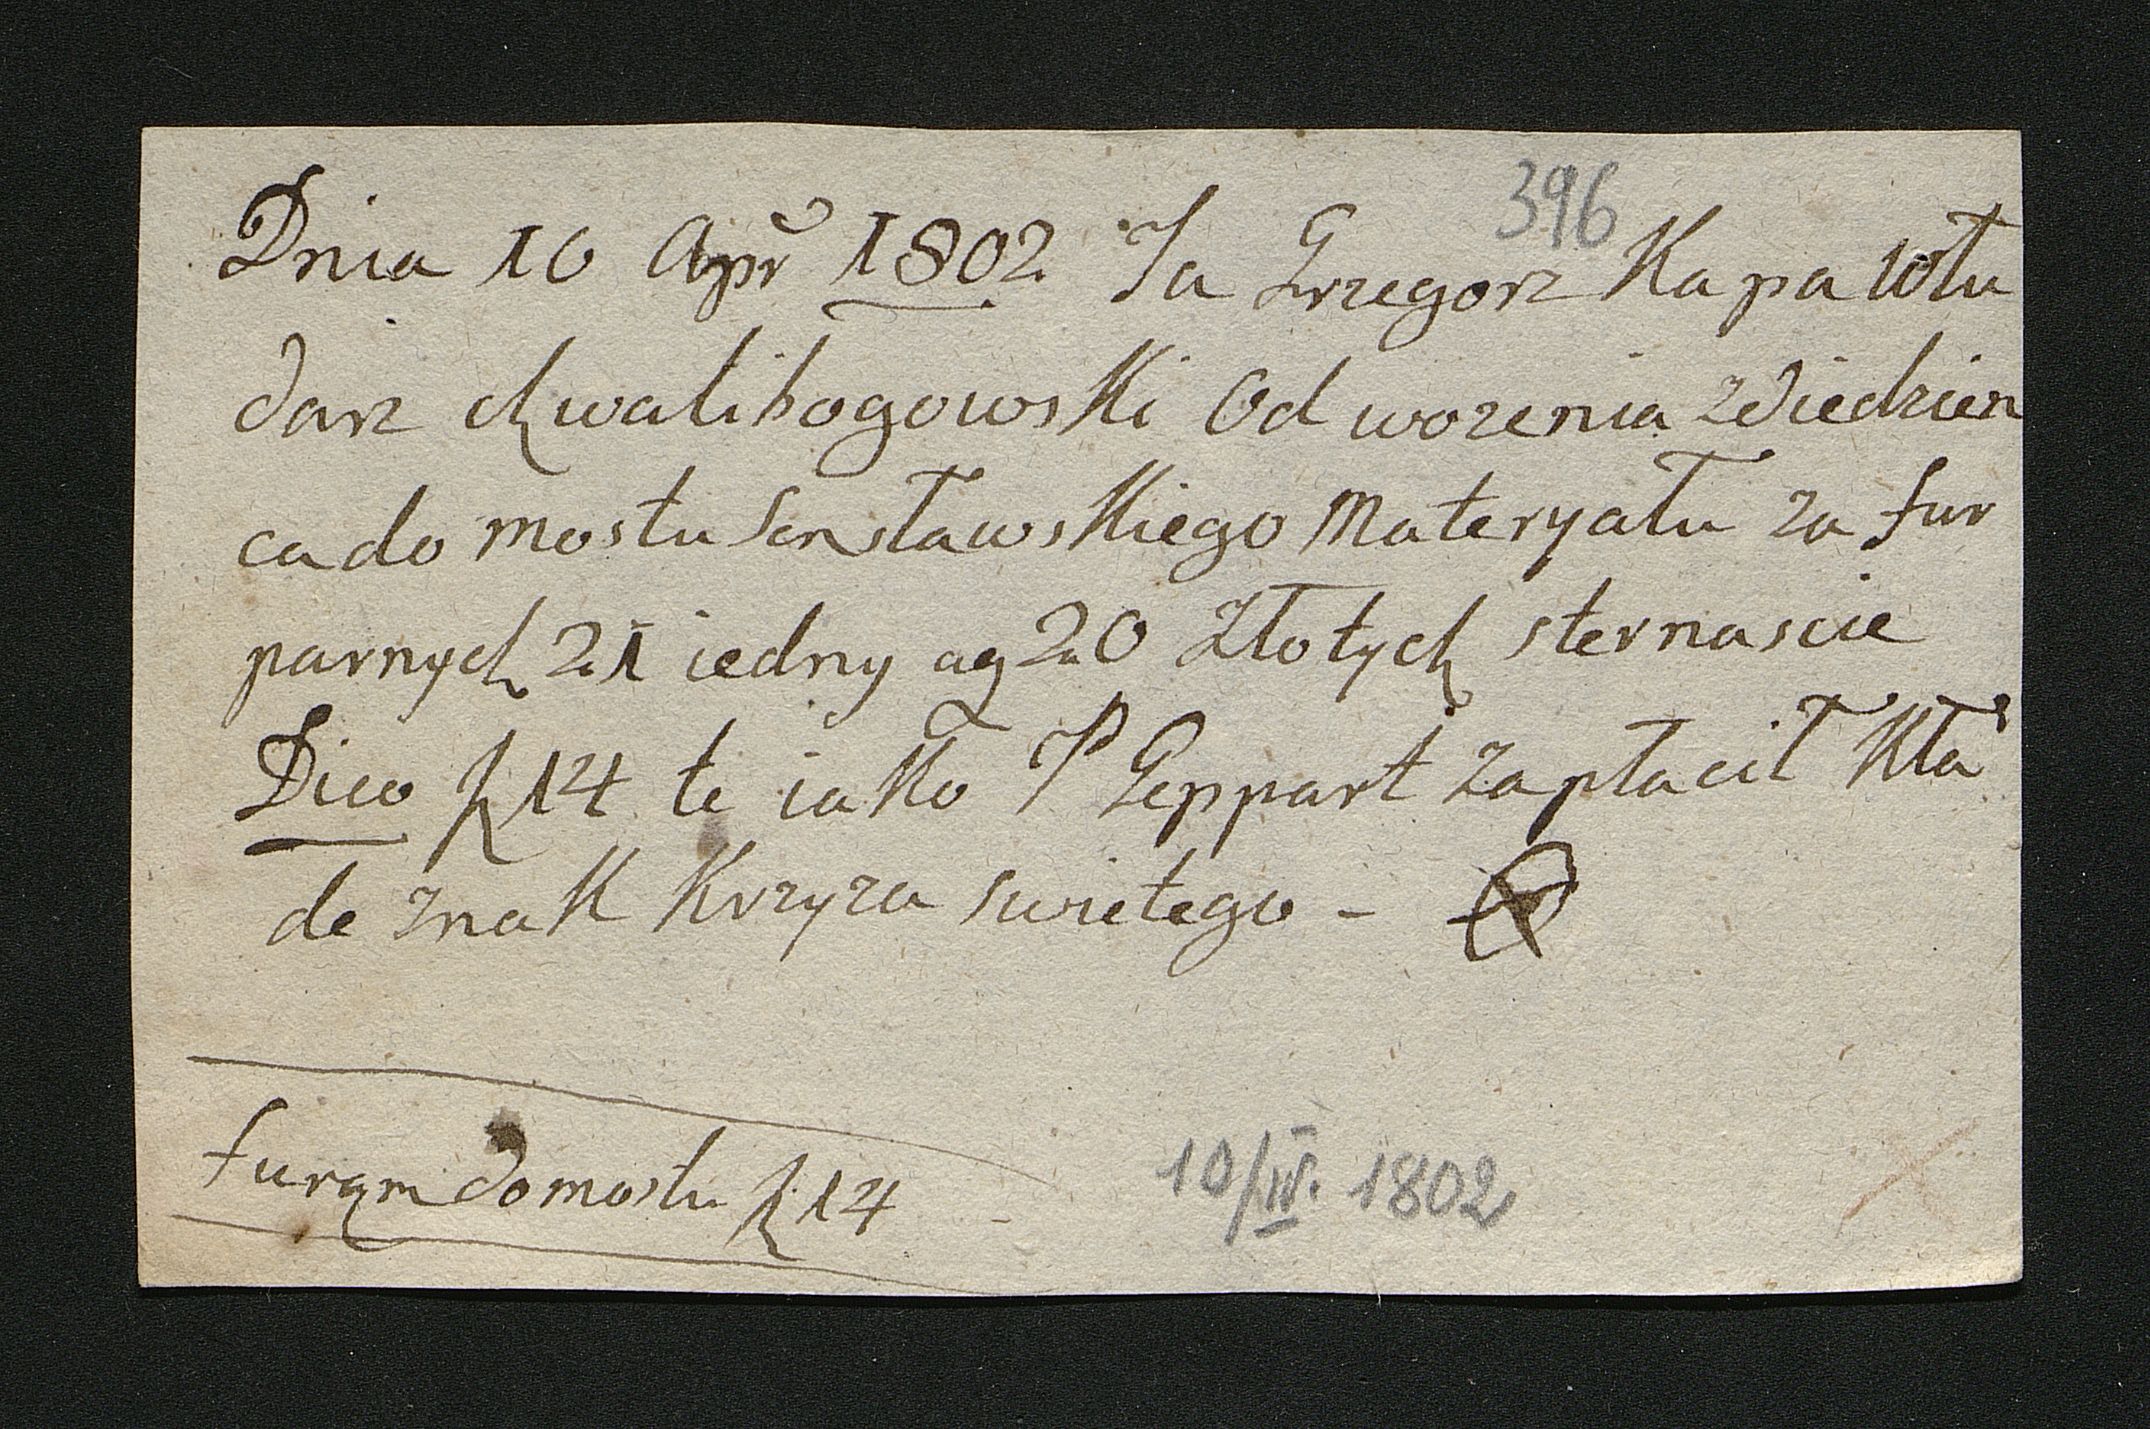 396
Dnia 10 Apr 1802 Ja Grzegorz Kapa Włu
darz chwalibogowski Od wozenia zdiedzien
ca do mostu Sensławskiego Materyału za fur
parnych 21 iedny ag 20 Złotych sternascie
Dico f 14 te iako P Geppart zapłacił Kła
de znak Krzyza swietego -
furąm do mostu f 14
10/IV. 1802